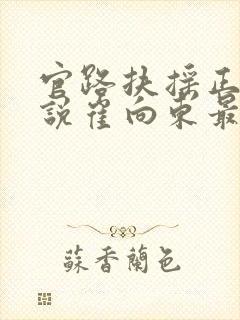 官路扶摇正
說崔向東最
蘇香蘭色